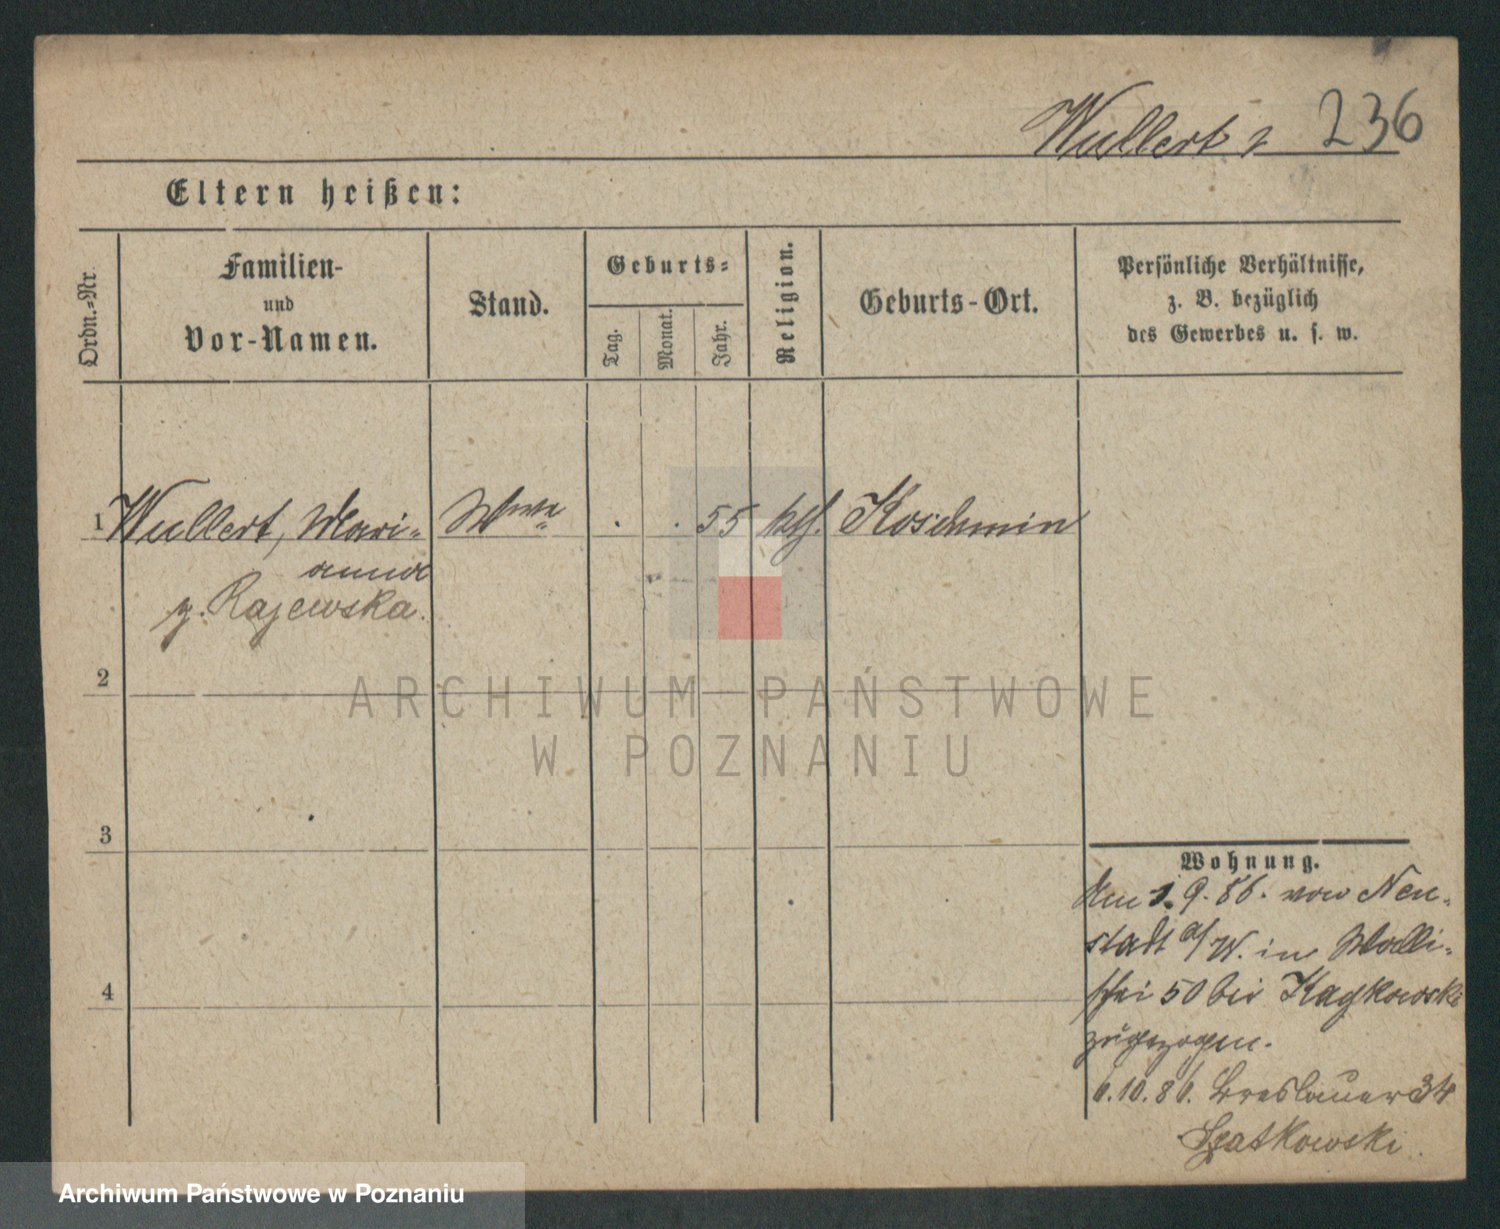 Wullert 236
Eltern heißen:
Ordn.-Nr.
Familien-
und
Vor-Namen.
Stand.
Geburts-
Tag.
Monat.
Jahr.
Religion.
Geburts-Ort.
Persönliche Verhältnisse,
z. B. bezüglich
des Gewerbes u. s. w.
1 Wullert, Mari- Wwe . . 55 kth. Koschmin
anna
g. Rajewska.
2
ARCHIWUM PAŃSTWOWE
W POZNANIU
3
4
Wohnung.
Am 1. 9. 86. von Neu-
stadt a/W. in Walli-
schei 50 bei
zugezogen.
6. 10. 86. Breslauer 34
Szatkowski
Archiwum Państwowe w Poznaniu